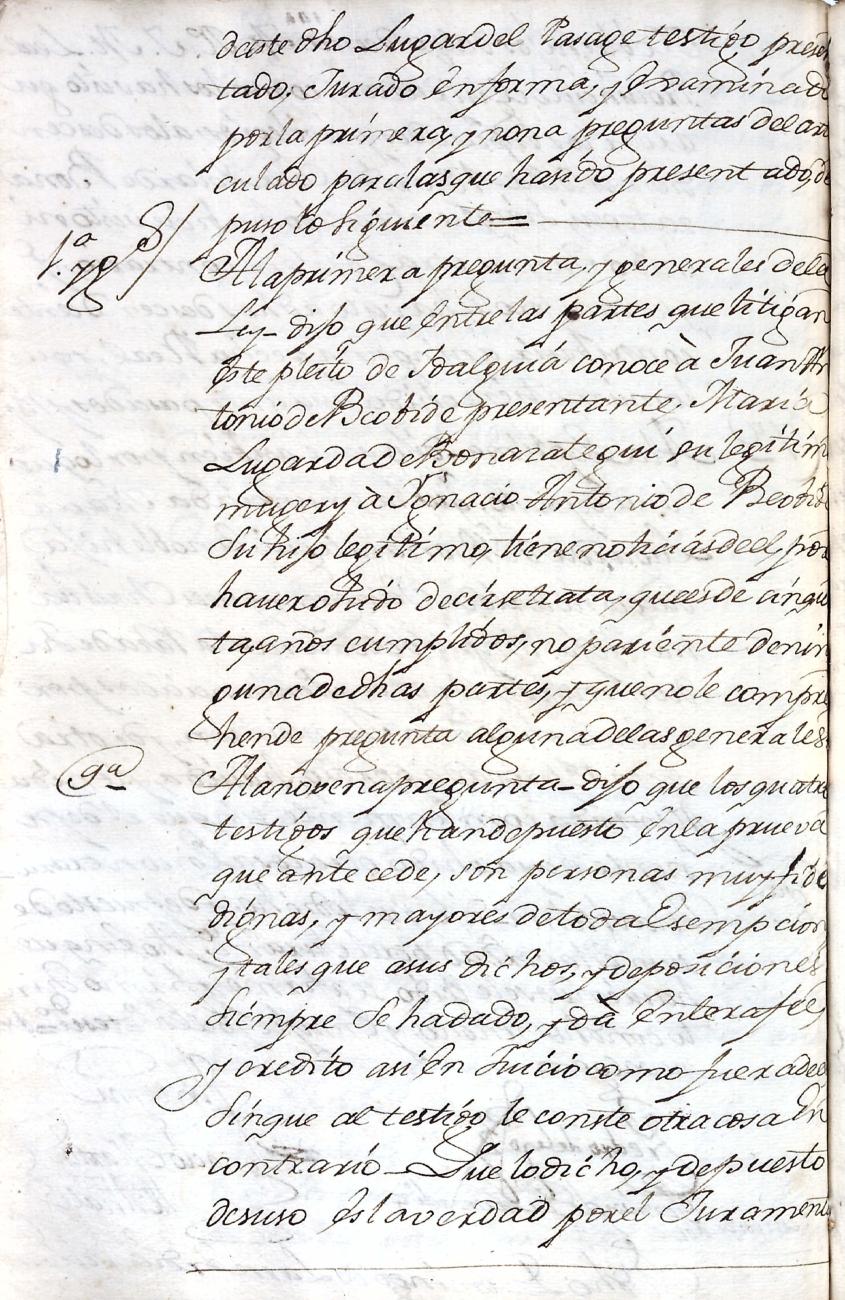 deste dho Lugar del Pasage testigo presen
tado. Jurado en forma, y examinado
por la primera, y nona preguntas del arti
culado para las que ha sido presentado, de
puso lo siguiente=
1.ª y g.s A la primera pregunta, y generales de la
Ley_ dijo que entre las partes que litigan
este pleito de Idalguia conoce à Juan An
tonio de Beobide presentante. Maria
Lugarda de Bonarategui su legitim
muger y à Ignacio Antonio de Beobide
su hijo legitimo, tiene noticias de el, por
haver ohido decir se trata, que es de cinquen
ta, años cumplidos, no pariente de nin
guna de dhas partes, y que no le compre
hende pregunta alguna de las generales
9ª A la novena pregunta_ dijo que los quatro
testigos que han depuesto en la prueva
que antecede, son personas muy fide
dignas, y mayores de toda Esempcion
y tales que a sus dichos, y deposiciones
siempre se ha dado, y dà entera fee,
y credito asi en Juicio como fuera de el
sin que al testigo le conste otra cosa en
contrario_ Que lo dicho, y depuesto
desuso es la verdad por el Jurament